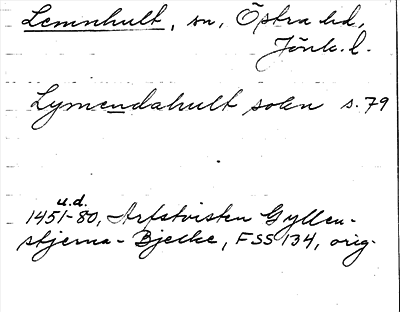 Lemnhult, sn, Östra hd,
Jönk. l.
Lymendahult sokn s. 79
u.d.
1451-80, Arfstvisten Gyllen-
stjerna - Bjelke, FSS 134, orig.